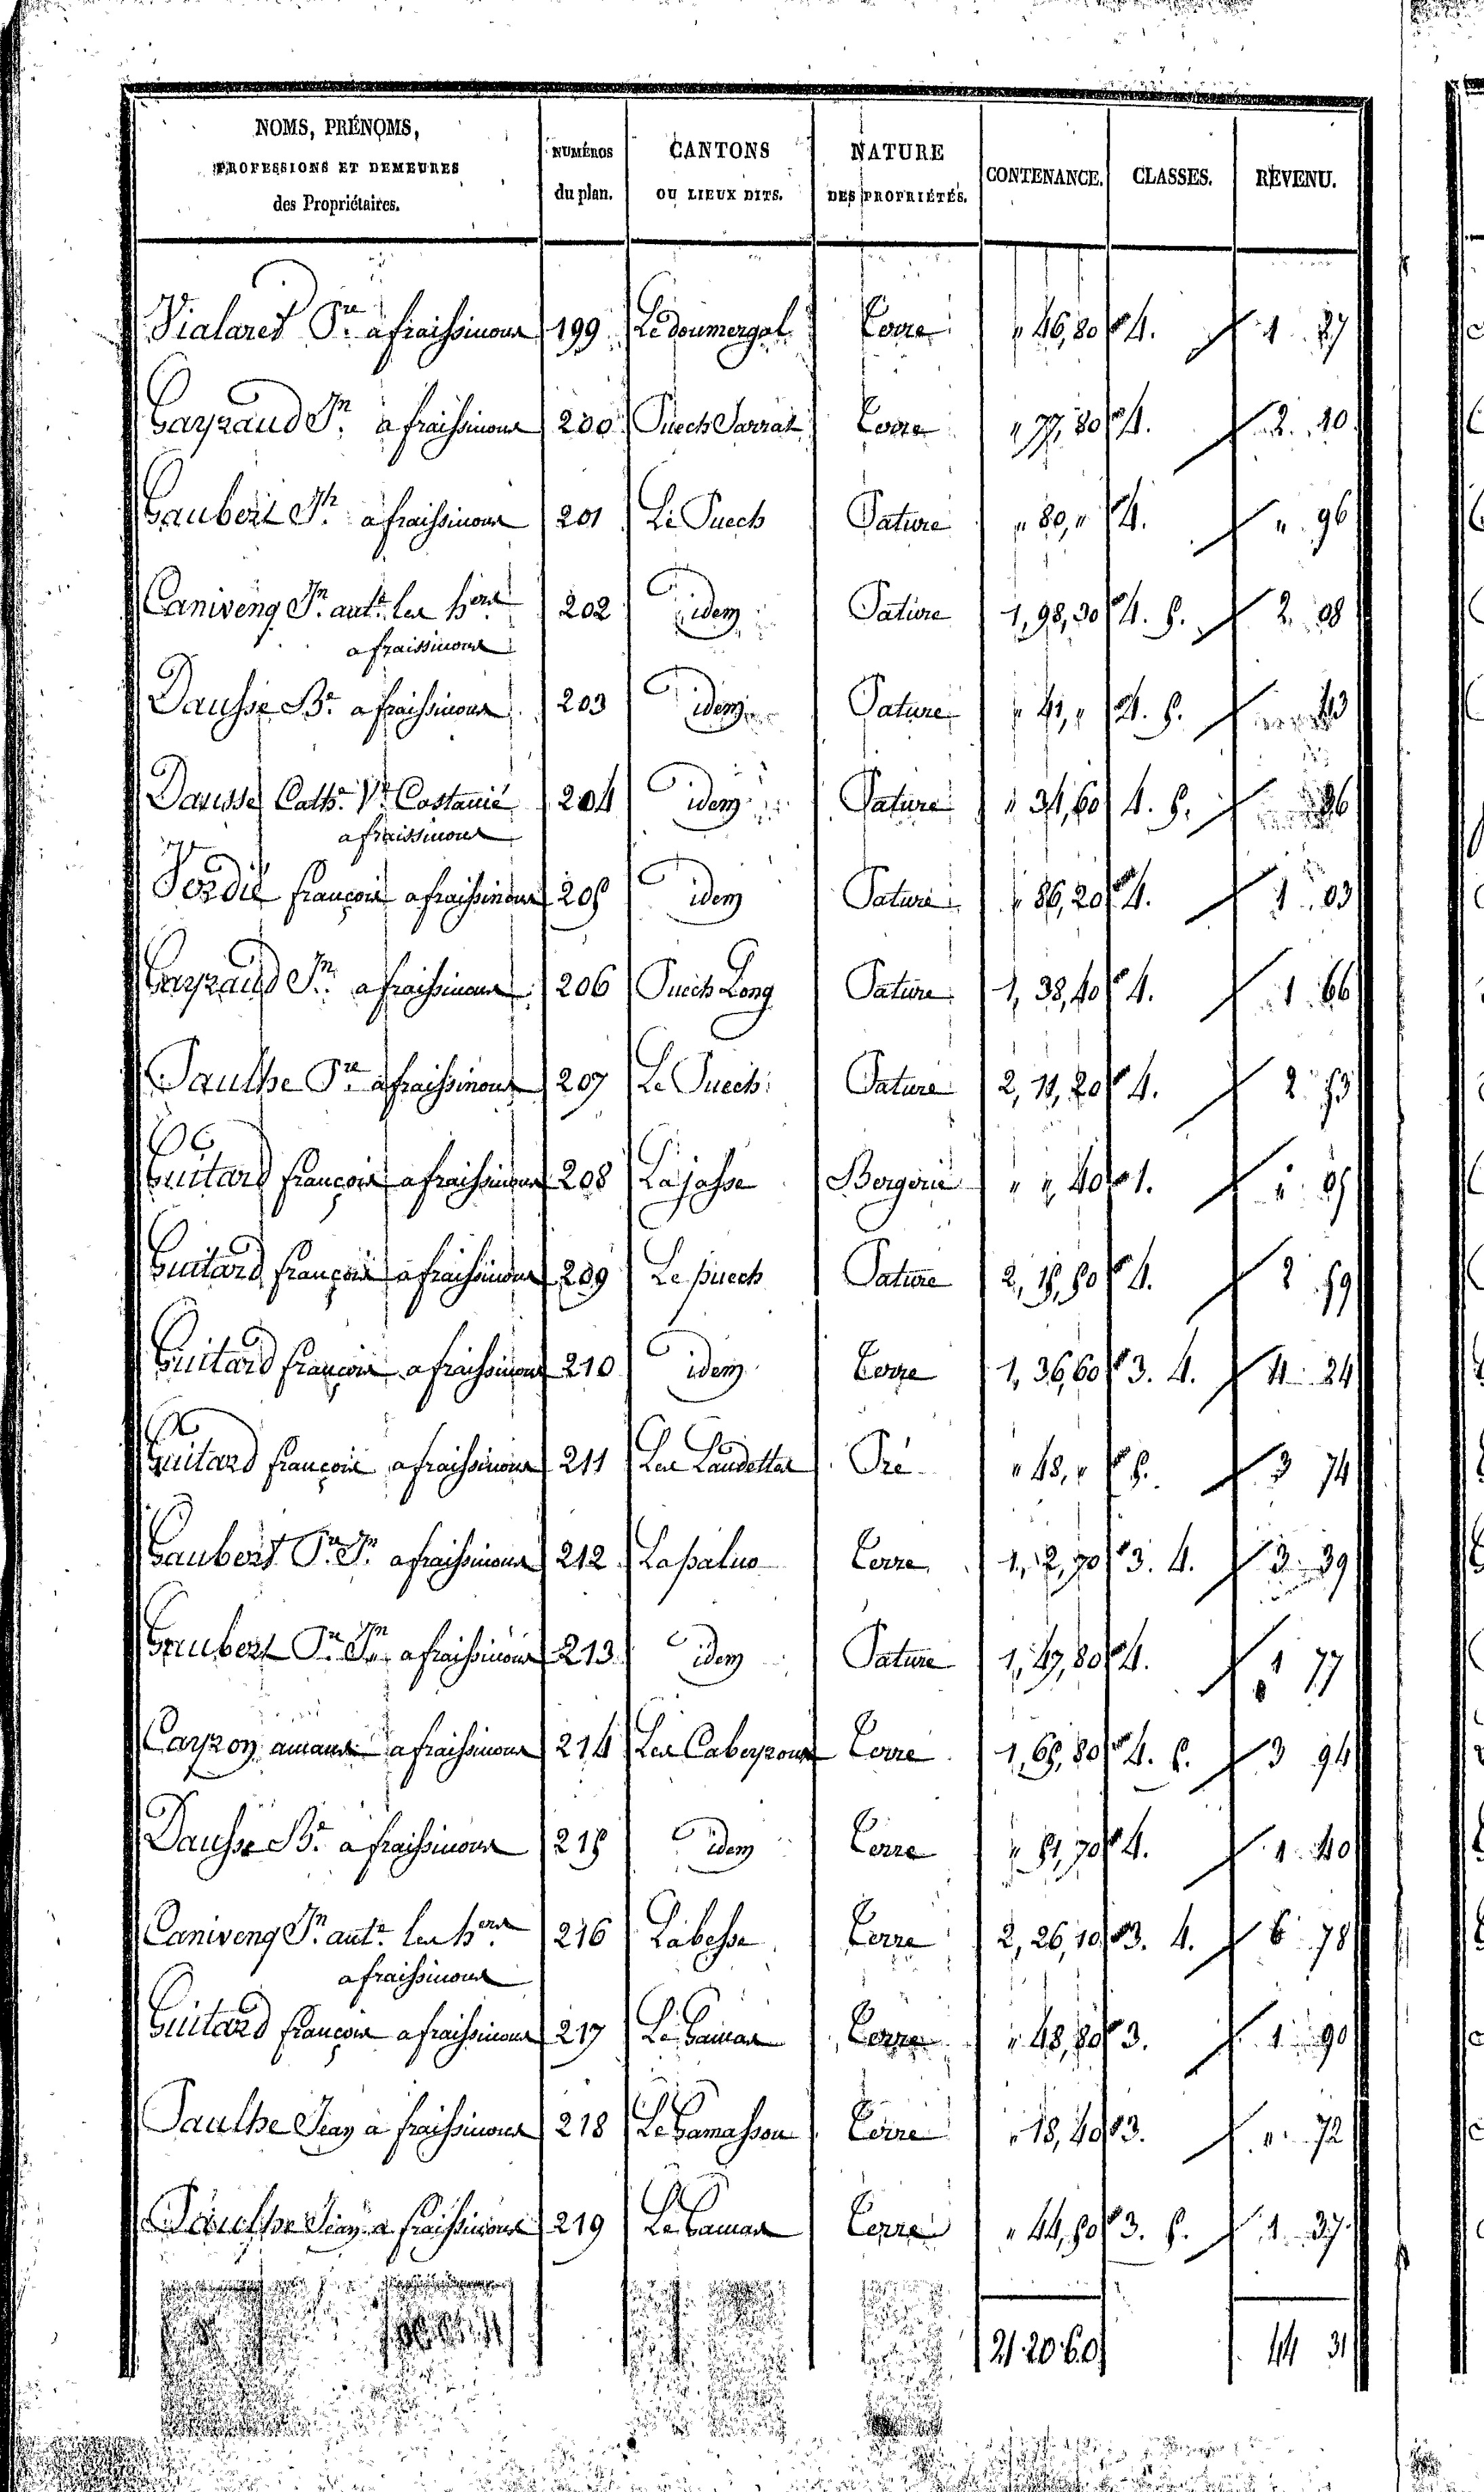 NOMS, PRÉNOMS, PROFESSIONS ET DEMEURES des Propriétaires. NUMÉROS du plan. CANTONS OU LIEUX DITS. NATURE DES PROPRIÉTÉS. CONTENANCE. CLASSES. REVENU.
Vialaret Pre à fraissinous 199 Le doumergal Terre " 46,80 4. 1 27
Gayraud Jn à fraissinous 200 Puech Sarrat Terre " 77,80 4. 2. 10
Gaubert Jh a fraissinous 201 Le Puech Pature " 80, " 4. " 96
Caniveng Jn ante les hers 202 idem Pature 1,98,30 4. 5. 2 08
a fraissinous
Dausse Bd a fraissinous 203 idem Pature " 41, " 4. 5. 43
Dausse Cathe Ve Costanié 204 idem Pature " 34,60 4. 5. 36
a fraissinous
Verdié françois a fraissinous 205 idem Pature " 86,20 4. 1 03
Gayraud Jn a fraissinous 206 Puech Long Pature 1,38,40 4. 1 66
Paulhe Pre a fraissinous 207 Le Puech Pature 2,11,20 4. 2 53
Guitard françois a fraissinous 208 La jasse Bergerie " " 40 1. " 05
Guitard françois a fraissinous 209 Le puech Pature 2,15,50 4. 2 59
Guitard françois a fraissinous 210 idem Terre 1,36,60 3. 4. 4 24
Guitard françois a fraissinous 211 Les Landettes Pré " 48, " 5. 3 74
Gaubert Pre Jn a fraissinous 212 La palus Terre 1,12,70 3. 4. 3 39
Gaubert Pre Jn a fraissinous 213 idem Pature 1,47,80 4. 1 77
Cayron amans a fraissinous 214 Les Cabeyrous Terre 1,65,80 4. 5. 3 94
Dausse Bd a fraissinous 215 idem Terre " 51,70 4. 1 40
Caniveng Jn ante les hers 216 Labesse Terre 2,26,10 3. 4. 6 78
a fraissinous
Guitard françois a fraissinous 217 Le Camas Terre " 48,80 3. 1 90
Paulhe Jean a fraissinous 218 Le Camassou Terre " 18,40 3. " 72
Paulhe Jean a fraissinous 219 Le Camas Terre " 44,50 3. 5. 1 37
21.20.60 44 31